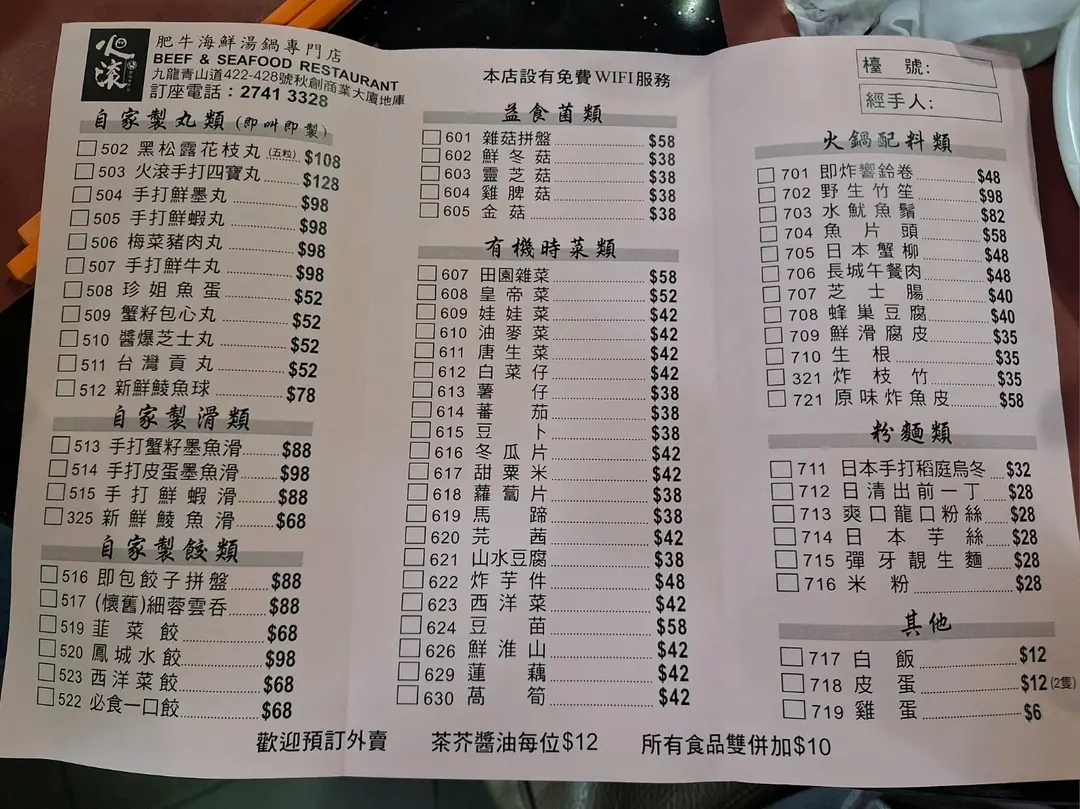 火滾
肥牛海鮮湯鍋專門店
BEEF & SEAFOOD RESTAURANT
九龍青山道422-428號秋創商業大廈地庫
訂座電話：2741 3328
本店設有免費WIFI服務
檯 號:
經手人:
自家製丸類 (即叫即製)
502 黑松露花枝丸 (五粒) $108
503 火滾手打四寶丸 $128
504 手打鮮墨丸 $98
505 手打鮮蝦丸 $98
506 梅菜豬肉丸 $98
507 手打鮮牛丸 $98
508 珍姐魚蛋 $52
509 蟹籽包心丸 $52
510 醬爆芝士丸 $52
511 台灣貢丸 $52
512 新鮮鯪魚球 $78
自家製滑類
513 手打蟹籽墨魚滑 $88
514 手打皮蛋墨魚滑 $98
515 手打鮮蝦滑 $88
325 新鮮鯪魚滑 $68
自家製餃類
516 即包餃子拼盤 $88
517 (懷舊)細蓉雲吞 $88
519 韮菜餃 $68
520 鳳城水餃 $98
523 西洋菜餃 $68
522 必食一口餃 $68
益食菌類
601 雜菇拼盤 $58
602 鮮冬菇 $38
603 靈芝菇 $38
604 雞脾菇 $38
605 金菇 $38
有機時菜類
607 田園雜菜 $58
608 皇帝菜 $52
609 娃娃菜 $42
610 油麥菜 $42
611 唐生菜 $42
612 白菜仔 $42
613 薯仔 $38
614 蕃茄 $38
615 豆卜 $38
616 冬瓜片 $42
617 甜粟米 $42
618 蘿蔔片 $38
619 馬蹄 $38
620 芫茜 $42
621 山水豆腐 $38
622 炸芋件 $48
623 西洋菜 $42
624 豆苗 $58
626 鮮淮山 $42
629 蓮藕 $42
630 萵筍 $42
火鍋配料類
701 即炸響鈴卷 $48
702 野生竹笙 $98
703 水魷魚鬚 $82
704 魚片頭 $58
705 日本蟹柳 $48
706 長城午餐肉 $48
707 芝士腸 $40
708 蜂巢豆腐 $40
709 鮮滑腐皮 $35
710 生根 $35
321 炸枝竹 $35
721 原味炸魚皮 $58
粉麵類
711 日本手打稻庭烏冬 $32
712 日清出前一丁 $28
713 爽口龍口粉絲 $28
714 日本芋絲 $28
715 彈牙靚生麵 $28
716 米粉 $28
其他
717 白飯 $12
718 皮蛋 $12 (2隻)
719 雞蛋 $6
歡迎預訂外賣 茶芥醬油每位$12 所有食品雙併加$10